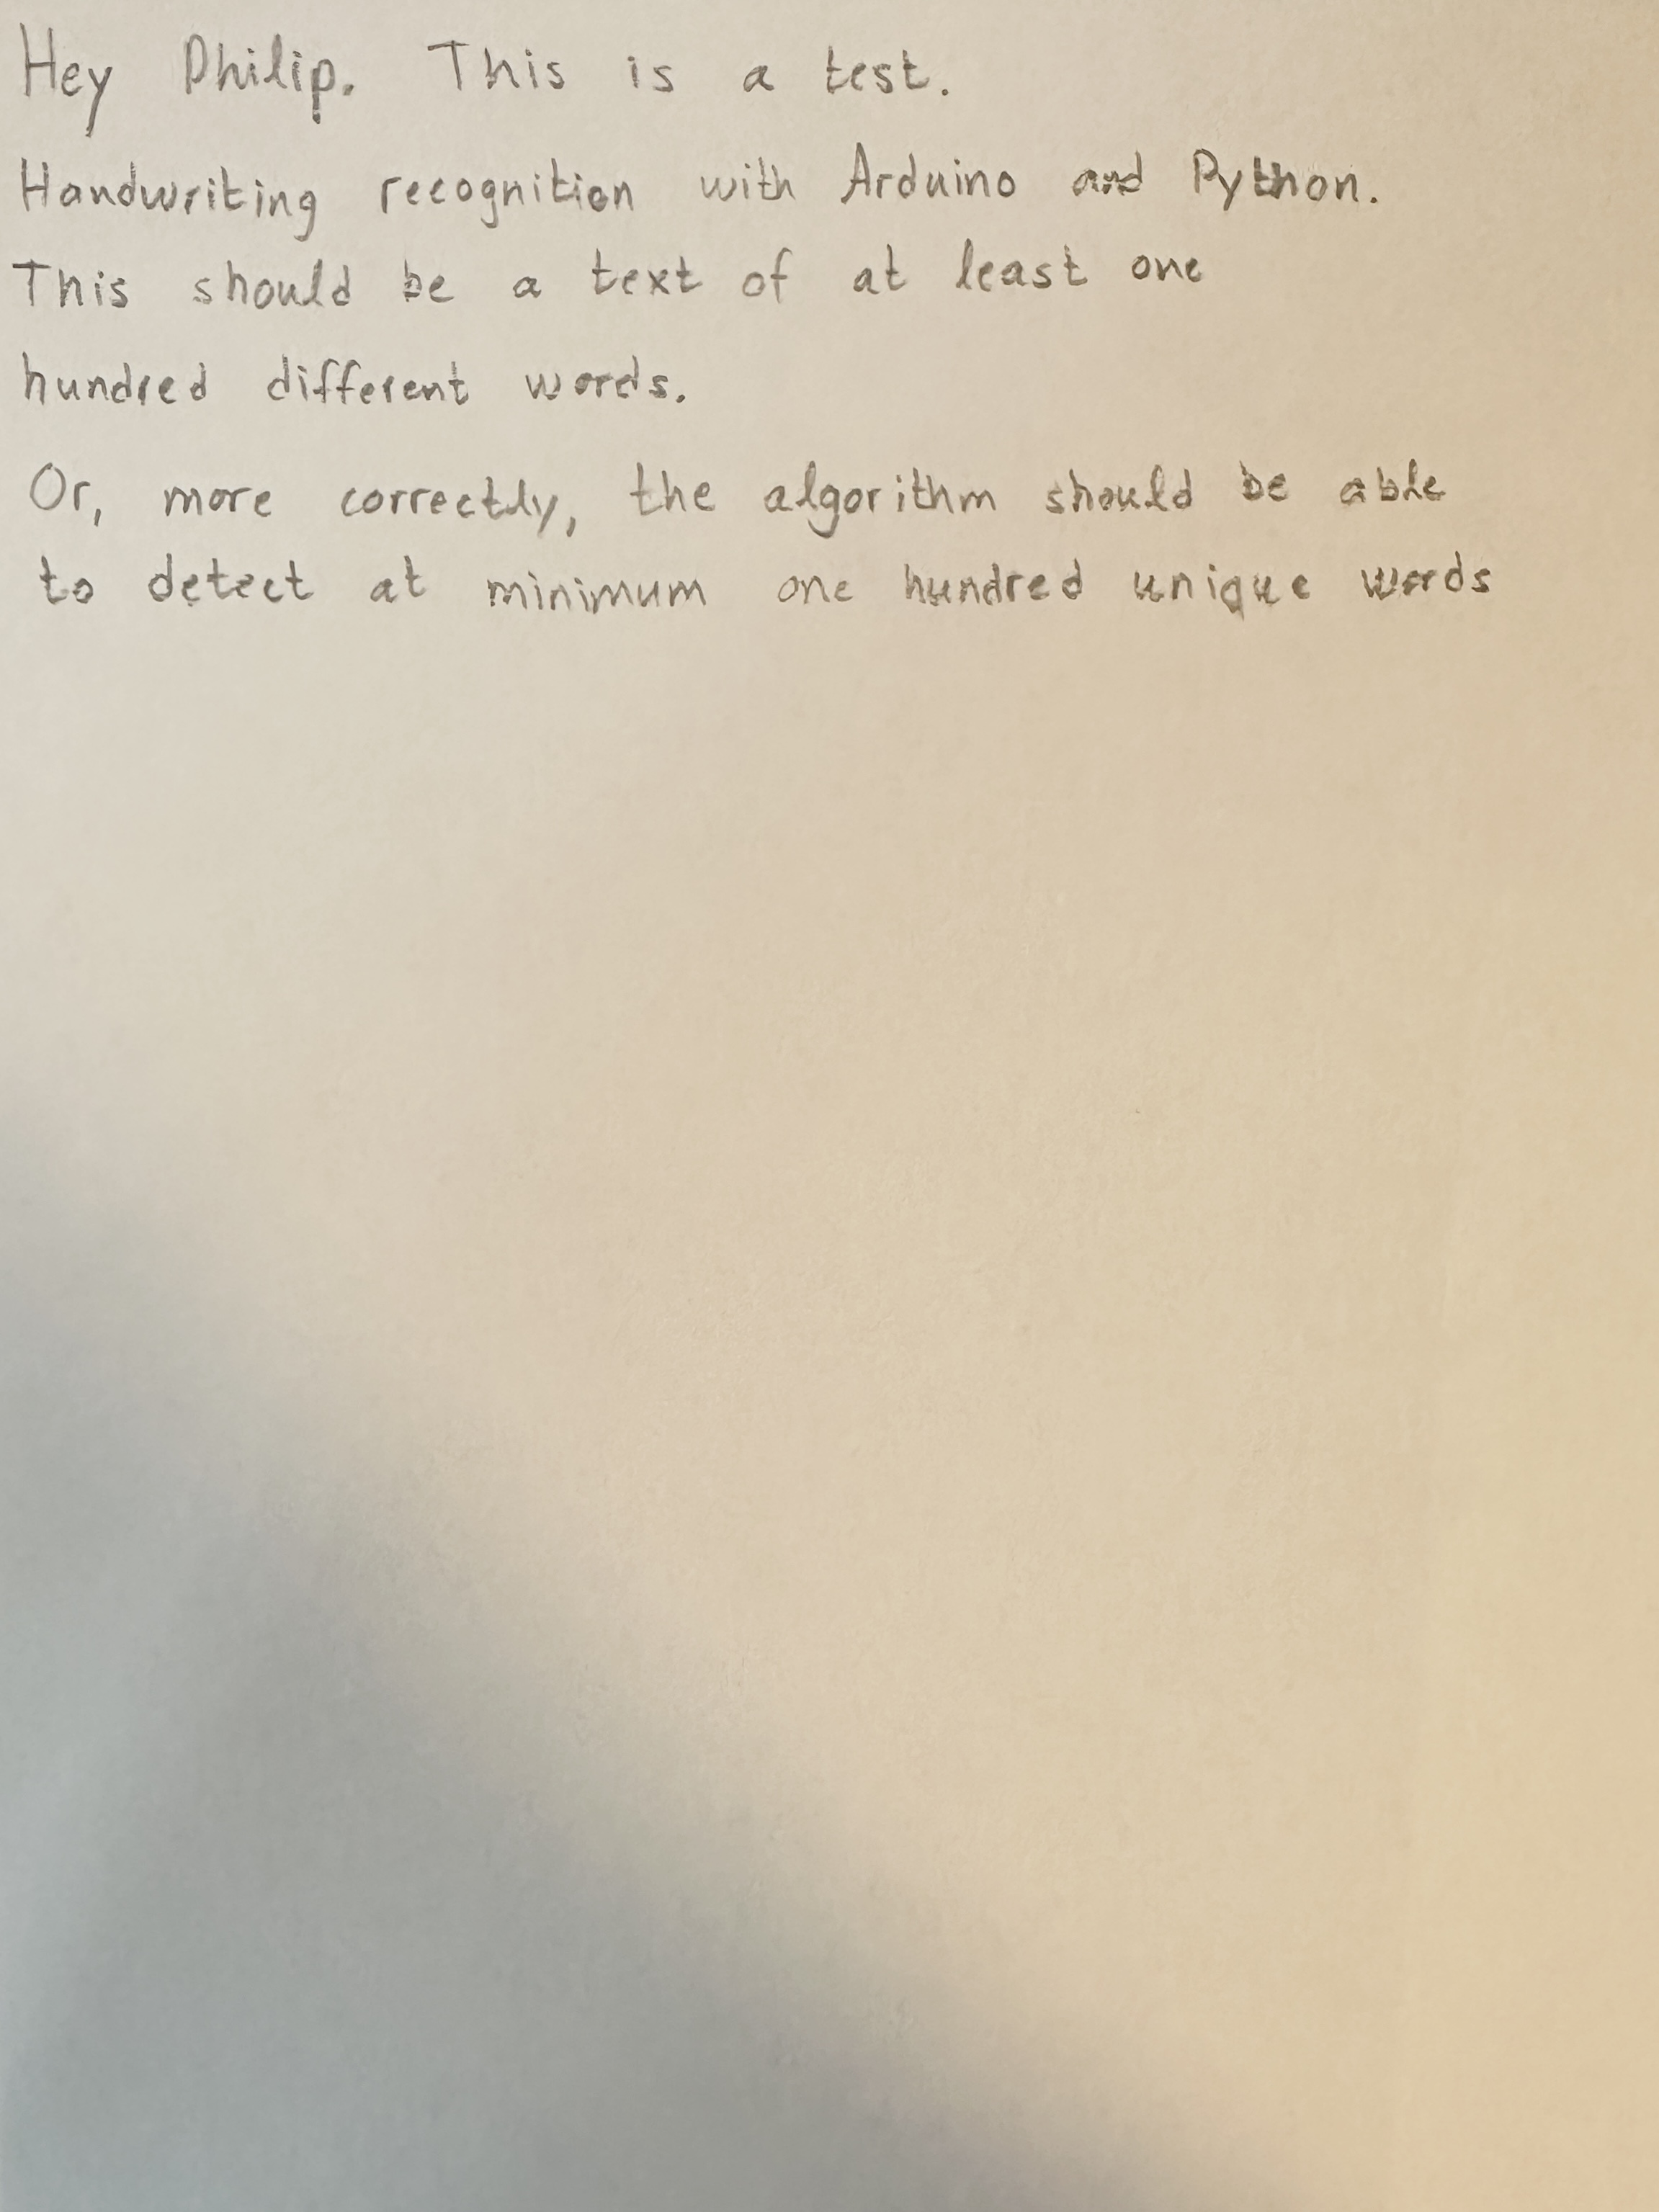 Hey Philip. This is a test.
Handwriting recognition with Arduino and Python.
This should be a text of at least one
hundred different words.
Or, more correctly, the algorithm should be able
to detect at minimum one hundred unique words